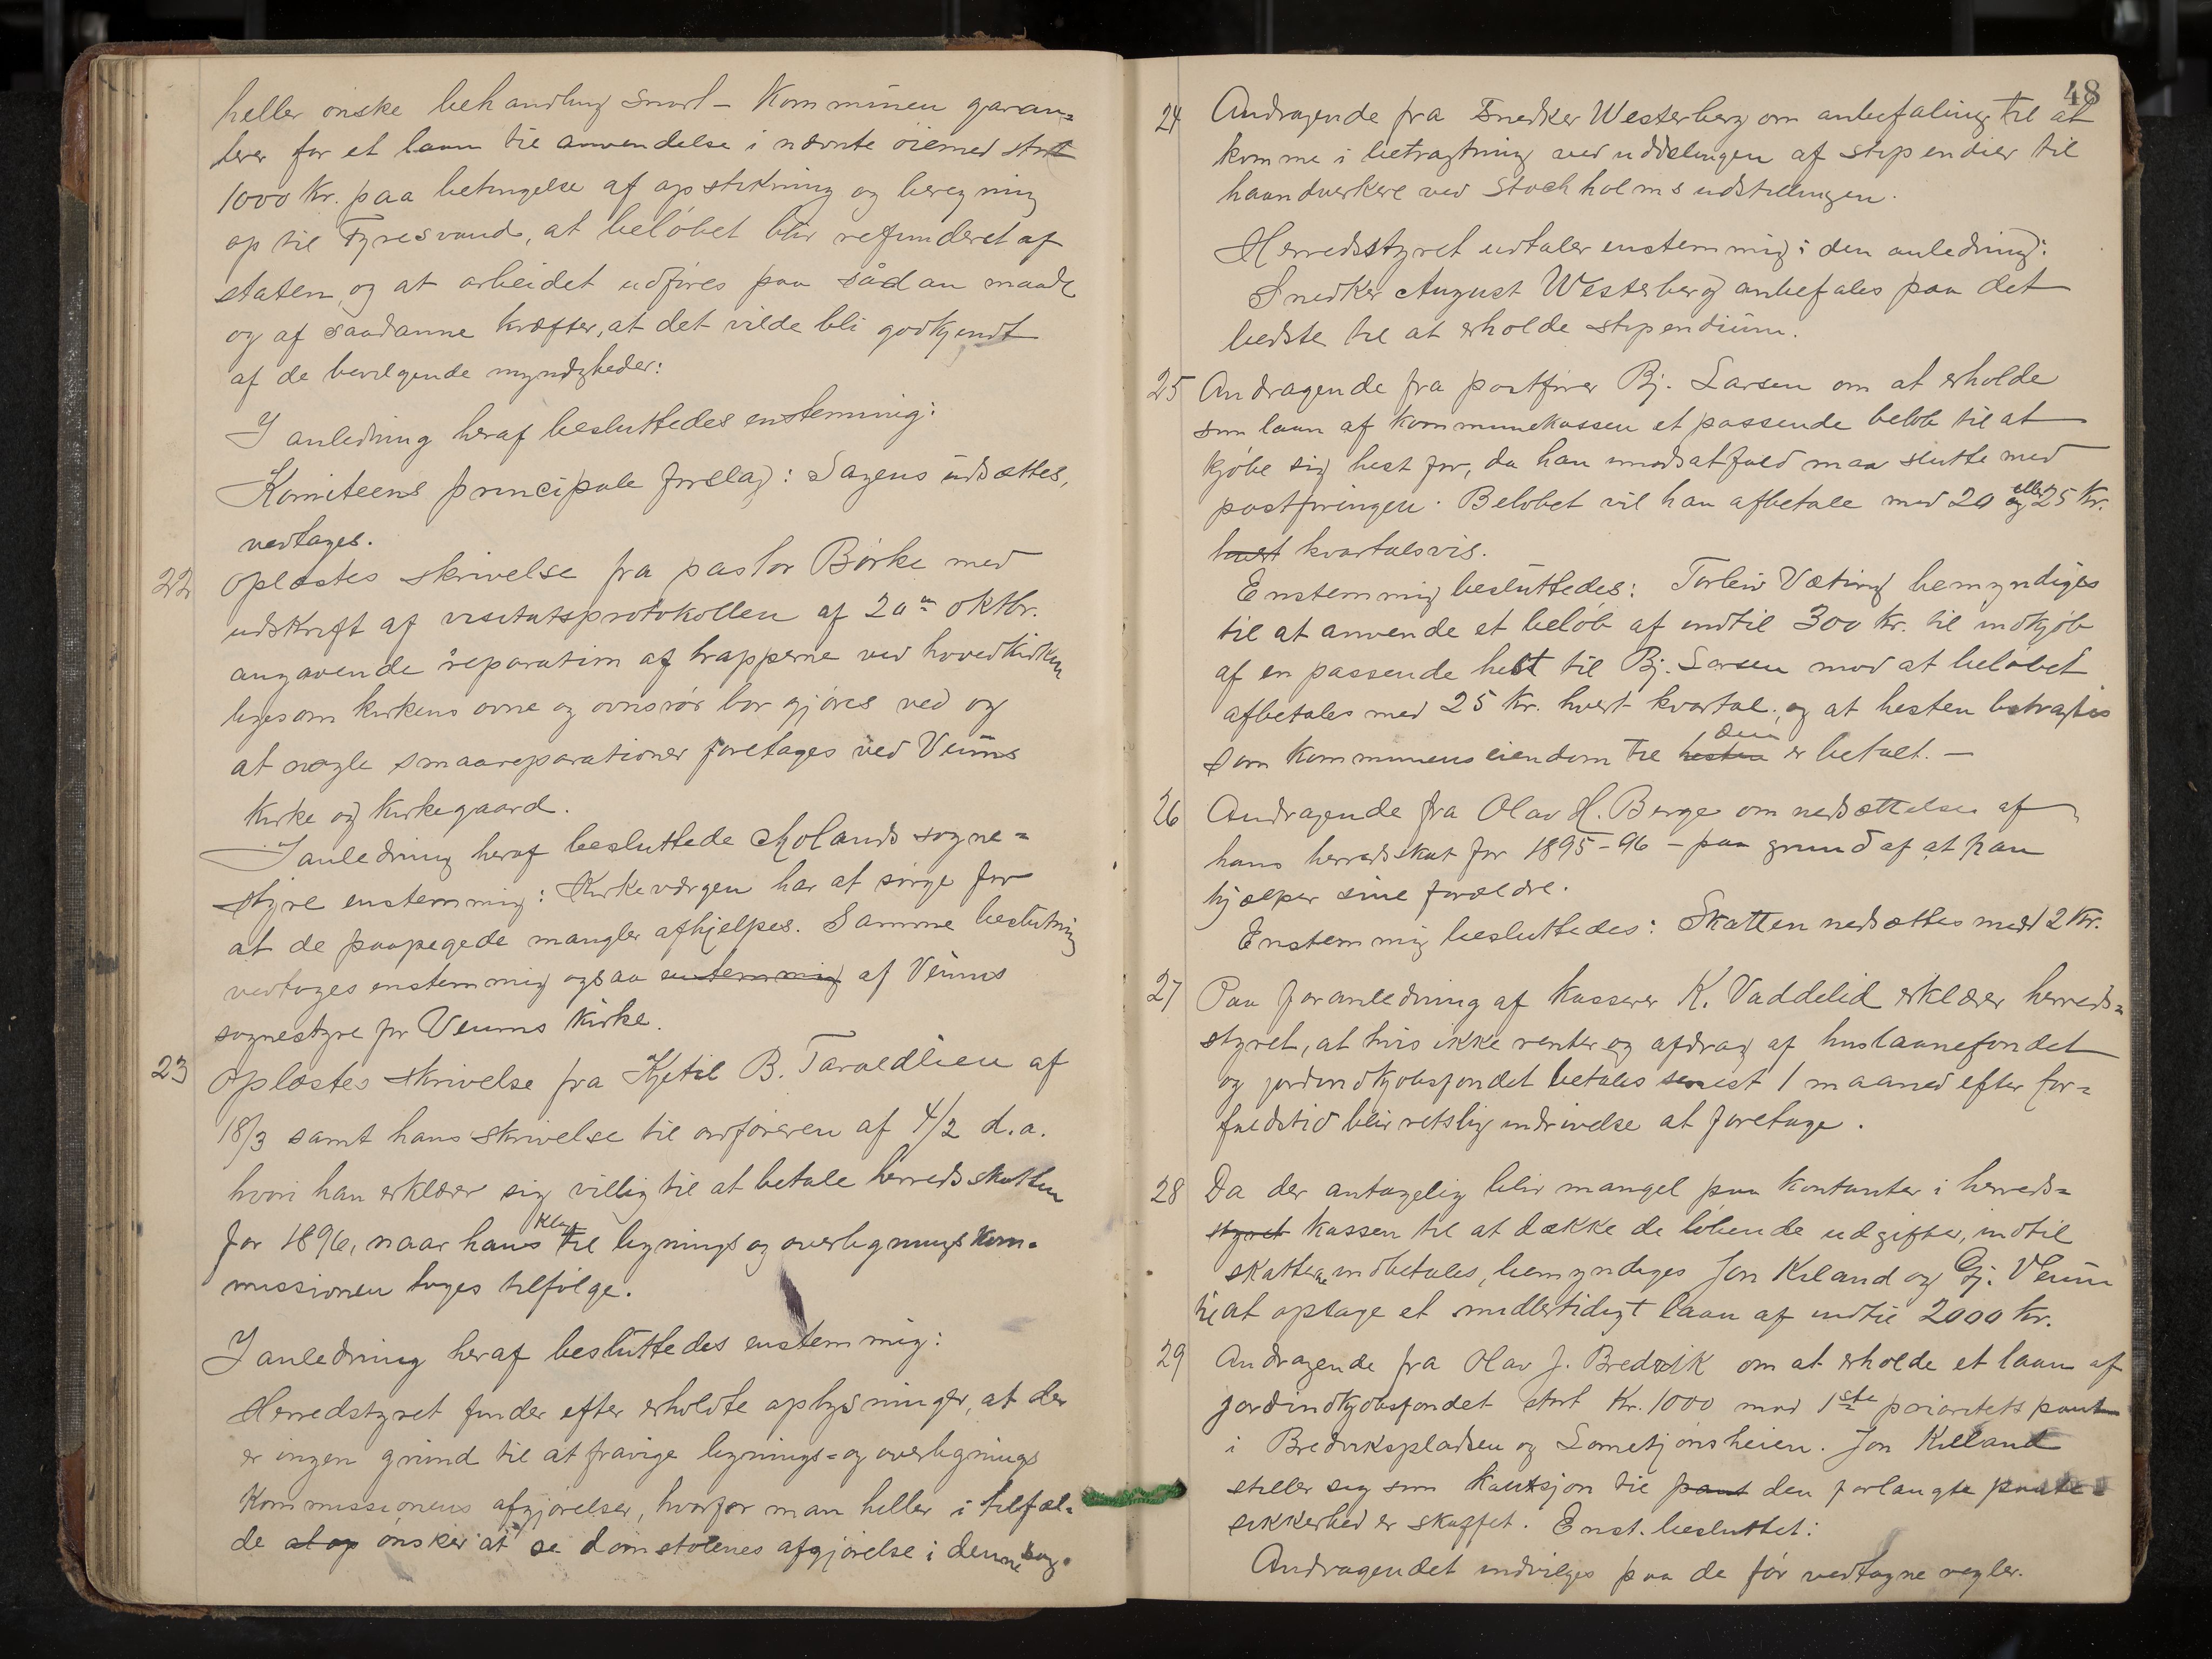 heller önske behandling snarl – Kommunen garan=
terer for et laan til anvendelse i nævnte öiemed stort
1000 Kr. paa betingelse af opstikning og beregning
op til Fyresvand, at belöbet blir refunderet af
staten, og at arbeidet udföres paa sådan maade
og af saadanne kræfter, at det vilde bli godkjendt
af de bevilgende myndigheder:
I anledning heraf besluttedes enstemmig:
Komiteens principale forslag: Sagens udsættes,
vedtages.
22 Oplæstes skrivelse fra pastor Börke med
udskrift af visitatsprotokollen af 20de oktbr.
angaaende reparation af trapperne ved hovedkirken
ligesom kirkens ovne og ovnsrör bör gjöres ved og
at nogle smaareparationer foretages ved Veums
Kirke og Kirkegaard.
I anledning heraf besluttede Molands sogne=
styre enstemmig: Kirkeværgen har at sörge for
at de paapegede mangler afhjelpes. Samme beslutning
vedtoges enstemmig ogsaa enstemmig af Veums
sognestyre for Veums Kirke.
23 Oplæstes skrivelse fra Kjetil B. Taraldlien af
18/3 samt hans skrivelse til ordföreren af 4/2 d.a.
hvori han erklærer sig villig til at betale herredsskatten
for 1896, naar hans klage til lignings og overlignings kom=
missionen tages tilfölge.
I anledning heraf besluttedes enstemmig:
Herredstyret finder efter erholdte oplysninger, at der
er ingen grund til at fravige lignings= og overlignings
Kommissionens afgjörelser, hvorfor man heller i tilfæl=
de at op önsker at se domstolenes afgjörelse i denne sag.
48
24 Andragende fra Snedker Westerberg om anbefaling til at
komme i betragtning ved uddelingen af stipendier til
haandverkere ved Stockholmsudstillingen.
Herredsstyret udtaler enstemmig i den anledning:
Snedker August Westerberg anbefales paa det
bedste til at erholde stipendium.
25 Andragende fra postförer Bj. Larsen om at erholde
som laan af kommunekassen et passende belöb til at
kjöbe sig hest for, da han imodsatfald maa slutte med
postföringen. Belöbet vil han afbetale med 20 og eller 25 Kr.
hvert kvartalsvis.
Enstemmig besluttedes: Torleiv Væting bemyndiges
til at anvende et belöb af indtil 300 Kr. til indkjöb
af en passende hest til Bj. Larsen mod at belöbet
afbetales med 25 Kr. hvert kvartal, og at hesten betragtes
som kommunens eiendom til hesten den er betalt. –
26 Andragende fra Olav H. Berge om nedsættelse af
hans herredsskat for 1895–96 – paa grund af at han
hjælper sine forældre.
Enstemmig besluttedes: Skatten nedsættes med 2 Kr.
27 Paa foranledning af kasserer K. Vaddelid erklærer herreds=
styret, at hvis ikke renter og afdrag af huslaanefondet
og jordindkjöbsfondet betales senest 1 maaned efter for=
faldstid blir retslig inddrivelse at foretage.
28 Da der antagelig blir mangel paa kontanter i herreds=
styret kassen til at dække de löbende udgifter, indtil
skatterne indbetales, bemyndiges Jon Kiland og Gj. Veum
til at optage et midlertidigt laan af indtil 2000 Kr.
29 Andragende fra Olav J. Bredvik om at erholde et laan af
jordindkjöbsfondet stort Kr. 1000 mod 1ste prioritets pant
i Bredvikspladsen og Lometjönsheien. Jon Kiland
stiller sig som kautsjon til pant den forlangte pante=
sikkerhed er skaffet. Enst. besluttet:
Andragendet indvilges paa de för vedtagne regler.